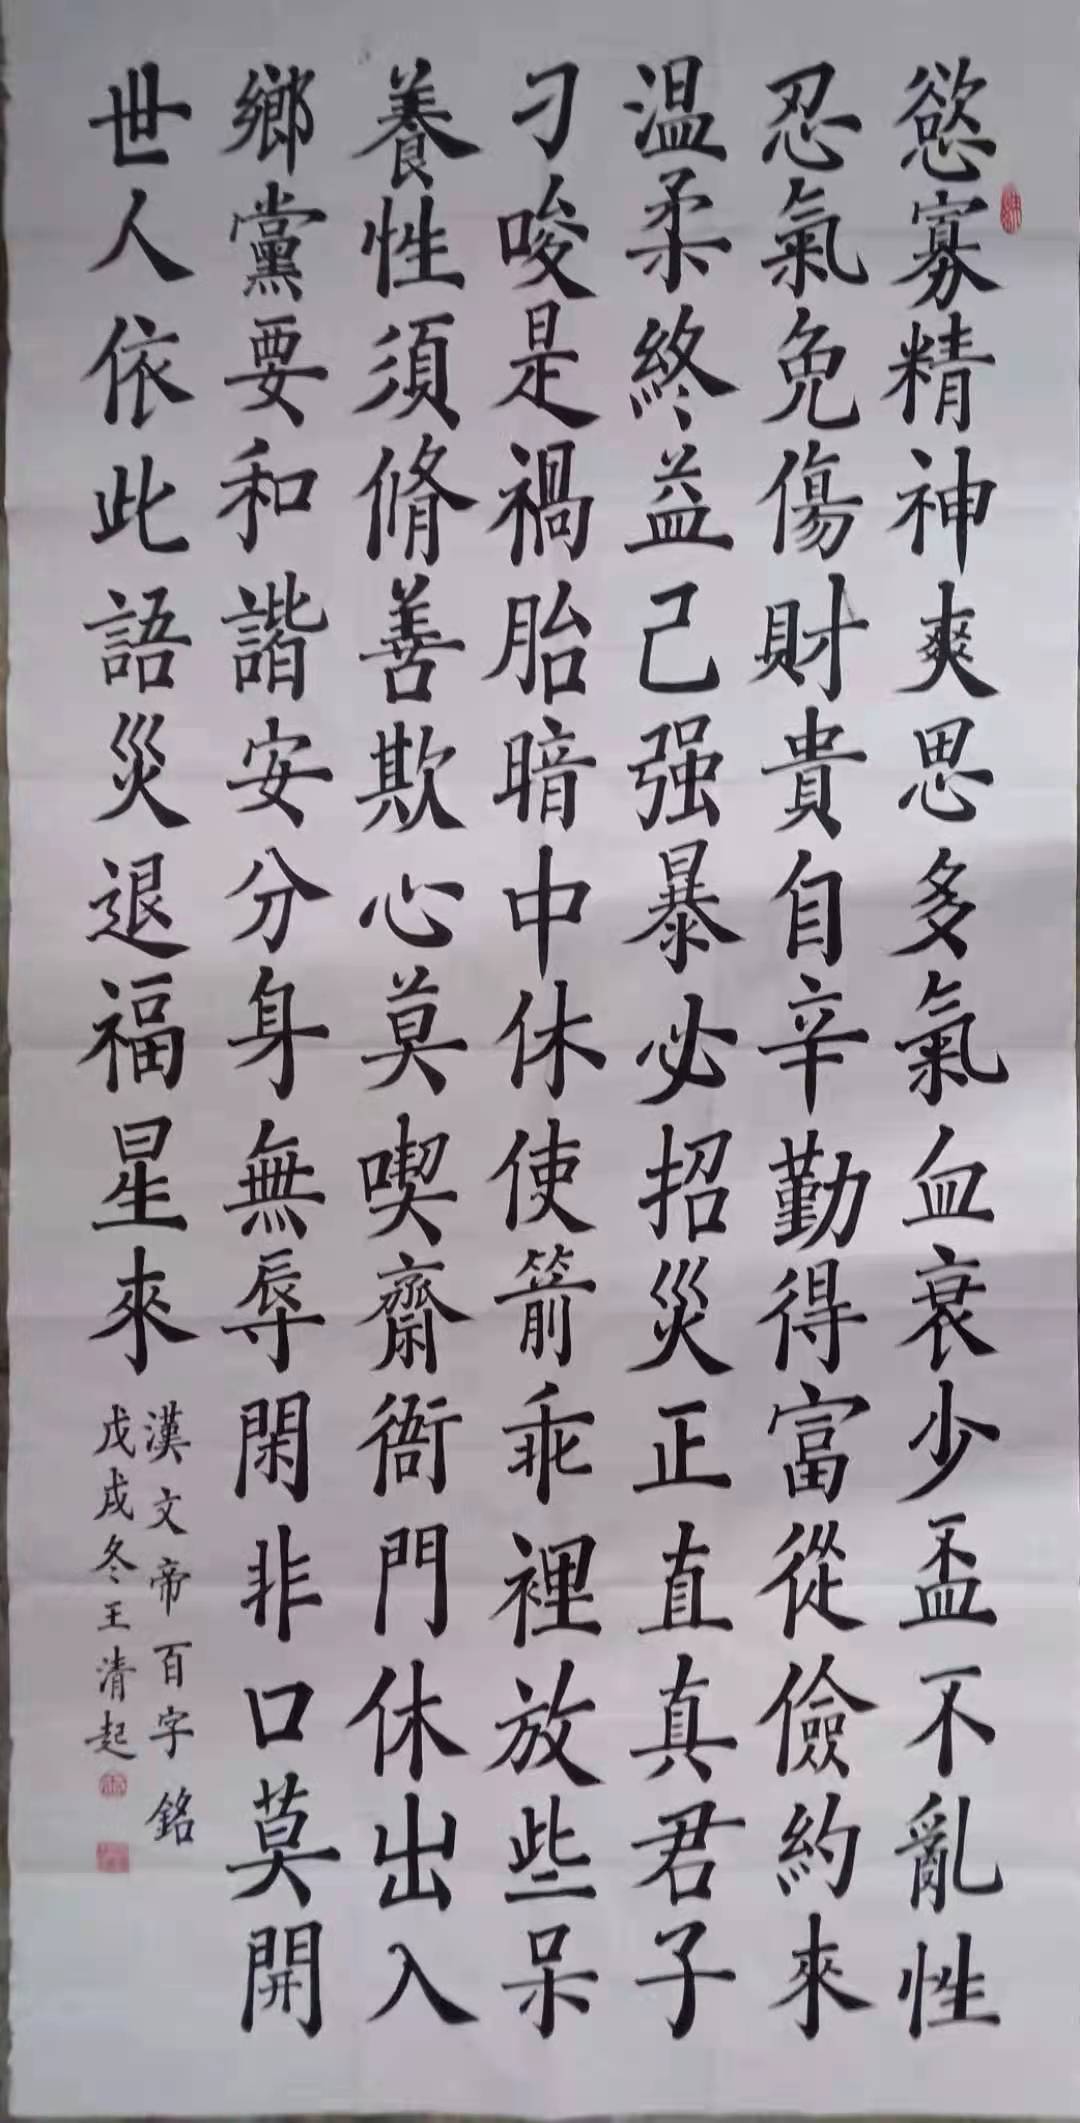 慾寡精神爽思多氣血衰少盃不亂性
忍氣免傷財貴自辛勤得富從儉約來
温柔終益己强暴必招災正直真君子
刁唆是禍胎暗中休使箭乖裡放些呆
養性須脩善欺心莫喫齋衙門休出入
鄉黨要和諧安分身無辱閑非口莫開
世人依此語災退福星來
漢文帝百字銘
戊戌冬王清起